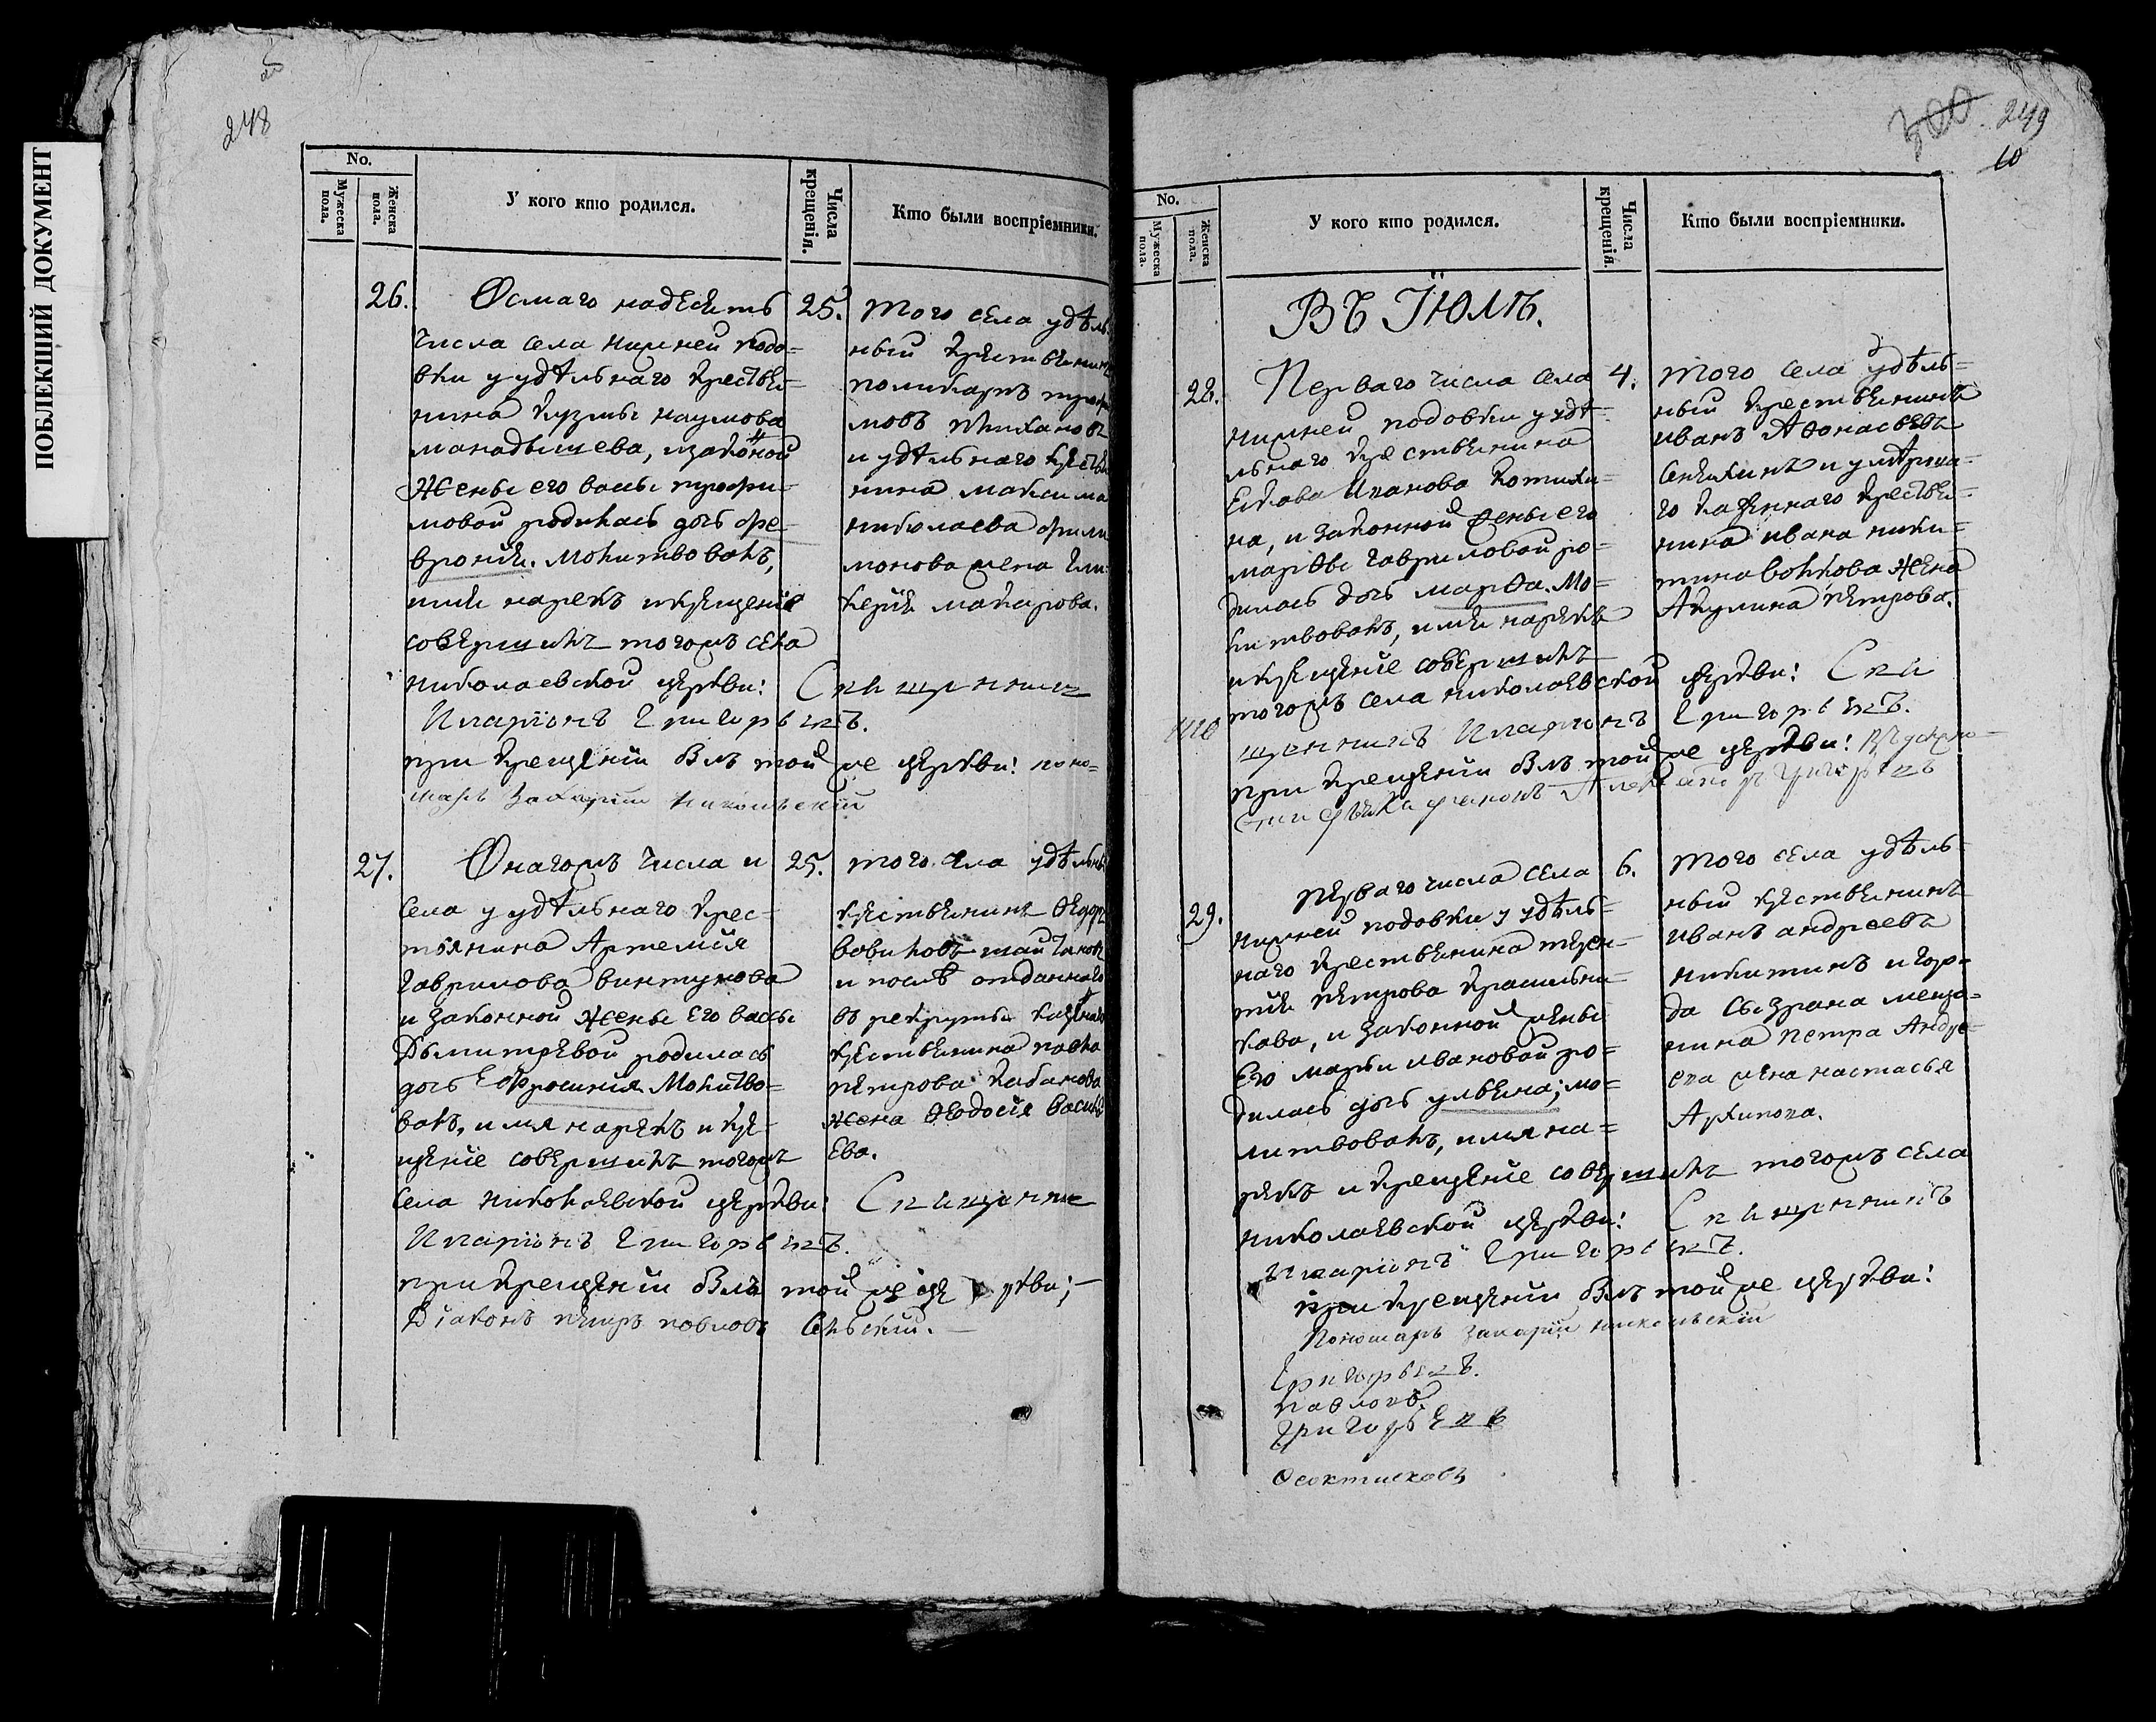 ПОБЛЕКШИЙ ДОКУМЕНТ
248
No.
Мужеска пола.
Женска пола.
У кого кто родился.
Числа крещенія.
Кто были воспріемники.
26.
Осмаго надесять
числа села нижней подо=
вки у удѣльнаго крестья=
нина Кузмы наумова
и законой
жены его вассы трофи=
мовой родилась дочь фе=
вронія. молитвовалъ,
имя нарекъ икрещеніе
совершилъ тогожъ села
николаевской церкви: Священникъ
Иларіонъ Григорьевъ.
при крещеніи былъ той же церкви: поно=
марь Захарій Никольскій
25.
того села удѣль
ный крестьянинъ
поликарпъ трофи
мовъ
и удѣльнаго крестья
нина максима
николаева фили
монова жена гли
керія макарова.
27.
Онагожъ числа и
села у удѣльнаго крес=
тьянина Артемія
гаврилова винтунова
и законной жены его вассы
Дьмитревой родилась
дочь Ефросинія Молитво=
валъ, имя нарекъ и кре=
щеніе совершилъ тогожъ
села николаевской церкви: Священникъ
Иларіонъ Григорьевъ.
при крещеніи былъ той же церкви;
Діаконъ петръ павловъ
25.
того села удѣльны
крестьянинъ Ѳедоръ
и послѣ отданнаго
въ рекруты казеннаго
крестьянина павла
петрова кабанова
жена Ѳеодосія Василь
ева.
300 249
10
No.
Мужеска пола.
Женска пола.
У кого кто родился.
Числа крещенія.
Кто были воспріемники.
Въ Іюлѣ.
28.
Перваго числа села
нижней подовки у удѣ=
льнаго крестьянина
Іакова Иванова Котихи=
на, и законной жены его
марѳы гавриловой ро=
дилась дочь марѳа. Мо=
литвовалъ, имя нарекъ
икрещеніе совершилъ
тогожъ села николаевской церкви: Свя
щенникъ Иларіонъ Григорьевъ.
при крещеніи былъ той же церкви:
Григорьевъ
4.
того села удѣль=
ный крестьянинъ
иванъ Аѳонасьевъ
го казеннаго крестья=
нина ивана ники=
тина волкова жена
Акулина петрова.
29.
перваго числа села
нижней подовки у удѣль=
наго крестьянина терен=
тія петрова красильни=
кова, и законной жены
его марьи ивановой ро=
дилась дочь ульяна; мо=
литвовалъ, имя на=
рекъ и крещеніе совершилъ тогожъ села
николаевской церкви: Священникъ
Иларіонъ Григорьевъ.
при крещеніи былъ той же церкви:
Пономарь Захарій никольскій
Григорьевъ.
Павловъ
Григорьевъ
6.
того села удѣль
ный крестьянинъ
иванъ андреевъ
никитинъ и горо=
да сызрана меща=
нина петра Андре=
ева жена настасья
Архипова.